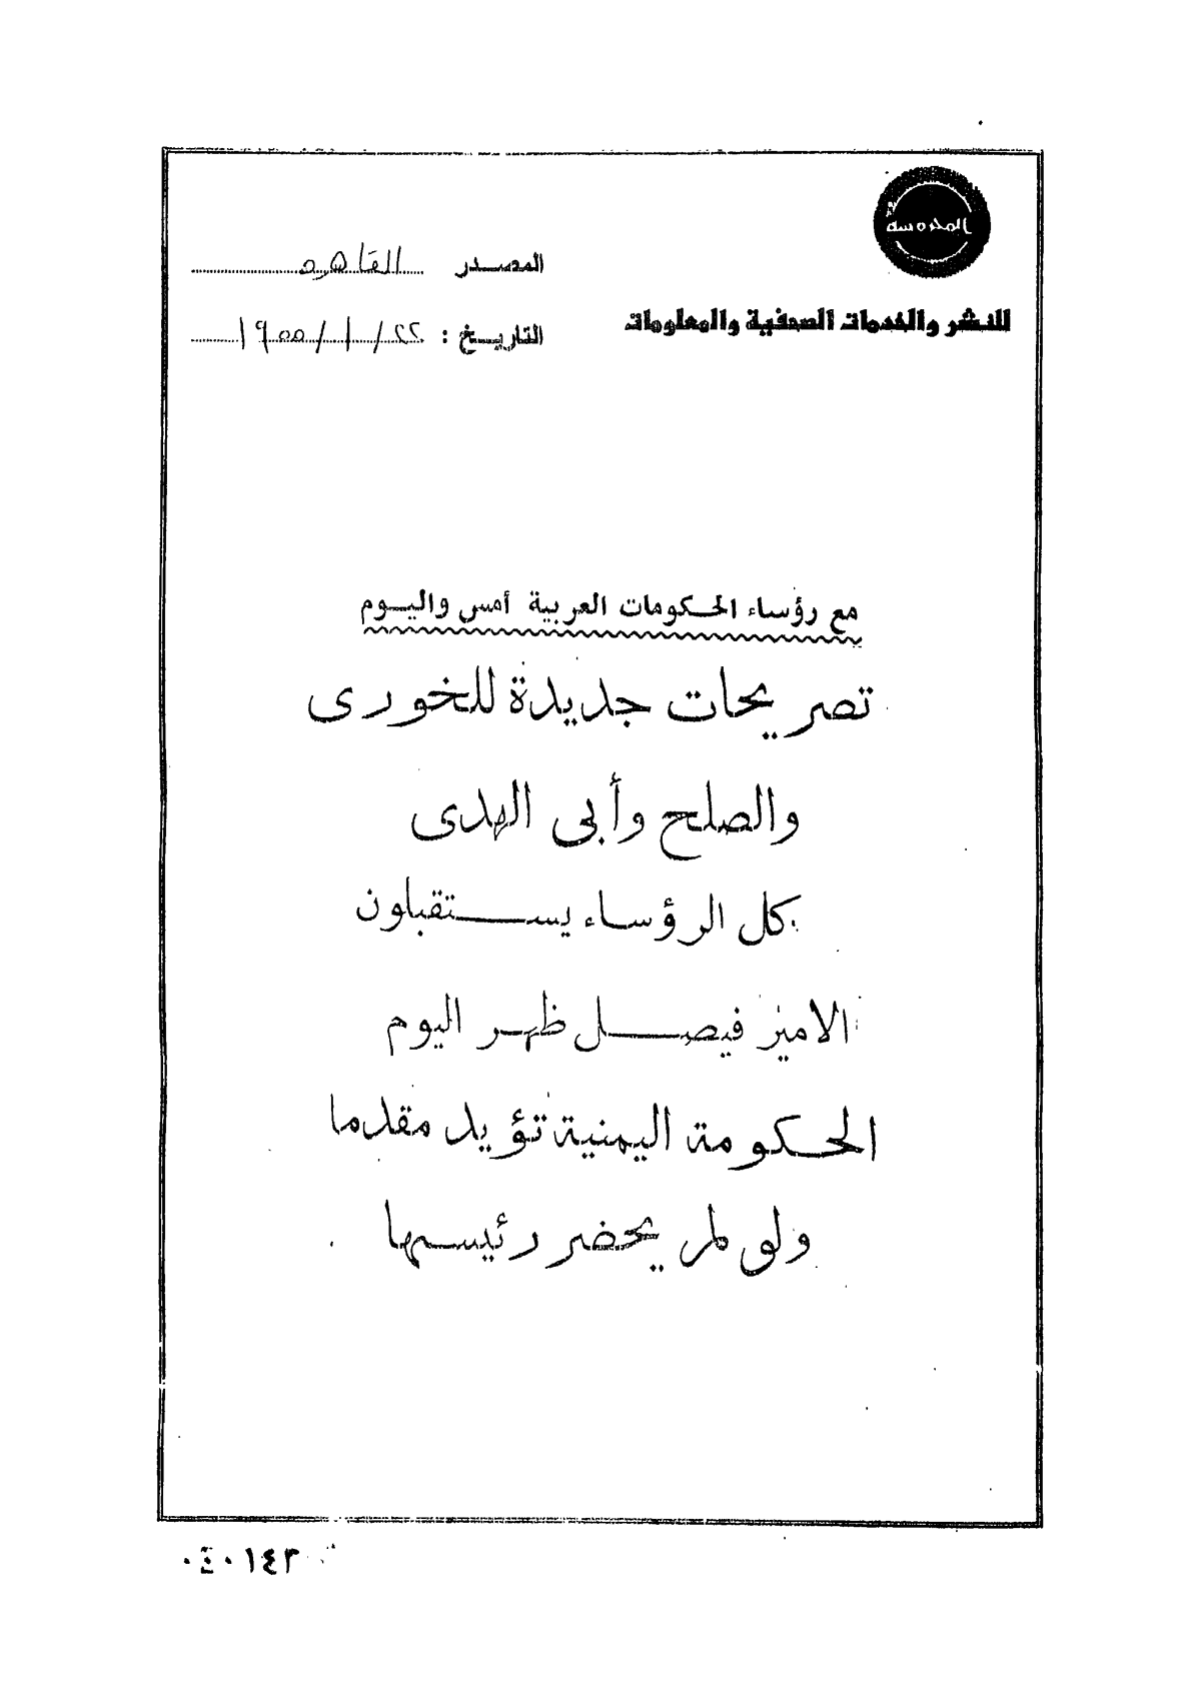 المحروسة
للنشر والخدمات الصحفية والمعلومات
المصدر القاهرة
التاريخ : ٢٢ / ١ / ١٩٥٥
مع رؤساء الحكومات العربية أمس واليوم
تصريحات جديدة للخورى
والصلح وأبى الهدى
كل الرؤساء يستقبلون
الامير فيصل ظهر اليوم
الحكومة اليمنية تؤيد مقدما
ولو لم يحضر رئيسها
٠٤٠١٤٣